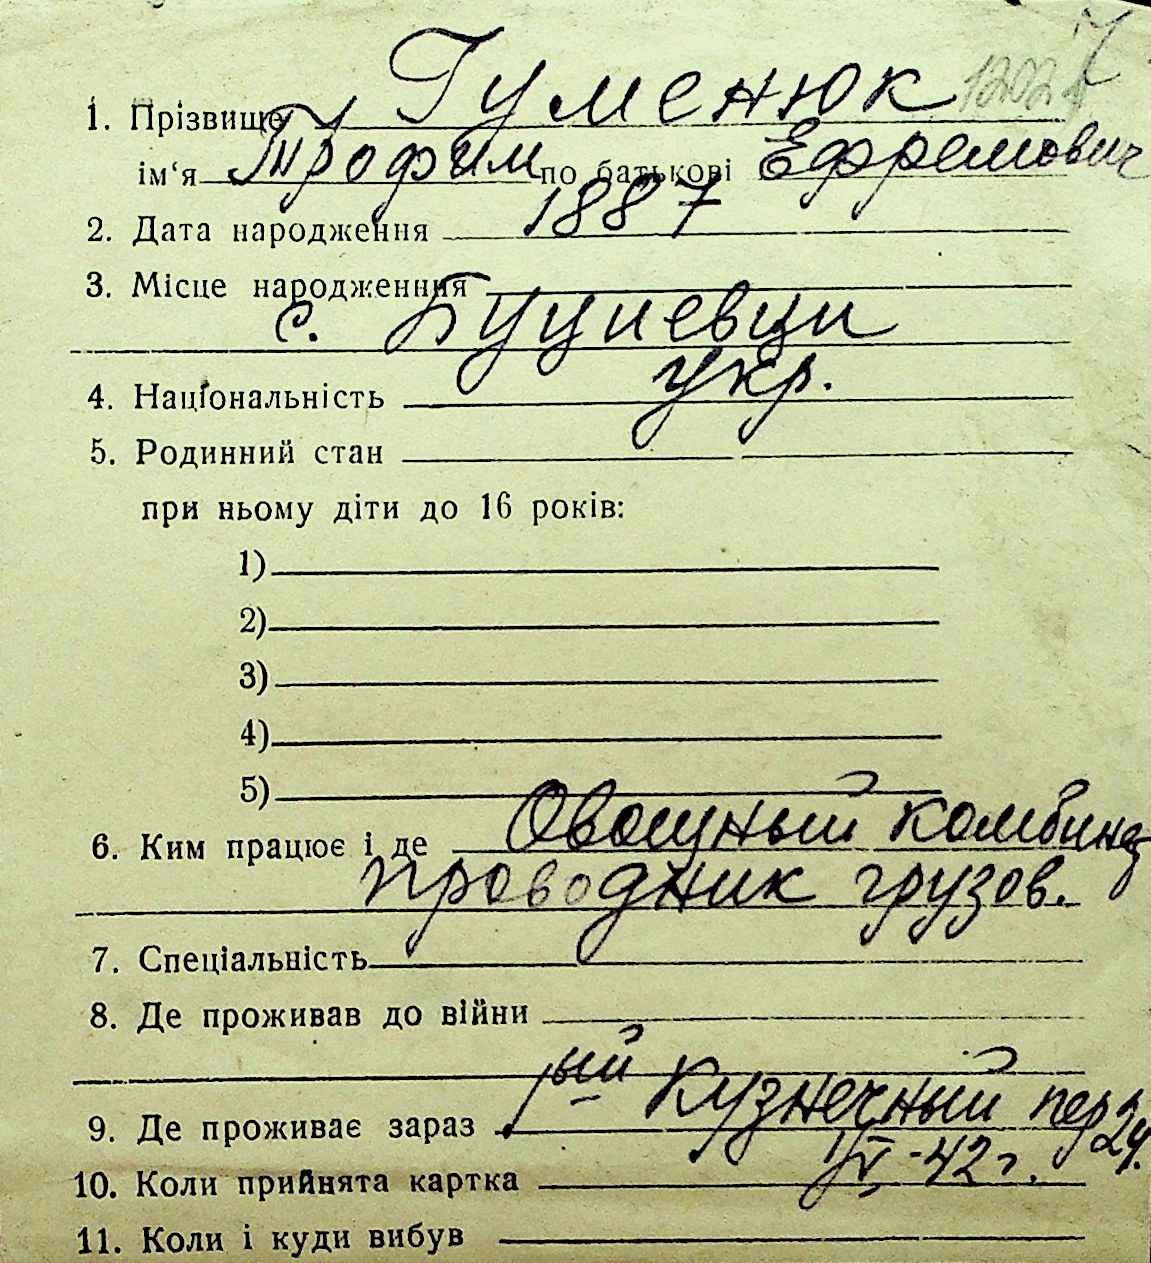 1. Прізвище Гуменюк
ім'я Трофим по батькові Ефремович
2. Дата народження 1887
3. Місце народженння
с. Буцневци
4. Національність укр.
5. Родинний стан
при ньому діти до 16 років:
1)
2)
3)
4)
5)
6. Ким працює і де Овощный комбинат
проводник грузов.
7. Спеціальність
8. Де проживав до війни
9. Де проживає зараз 1ый Кузнечный пер 24.
10. Коли прийнята картка 1/V-42 г.
11. Коли і куди вибув